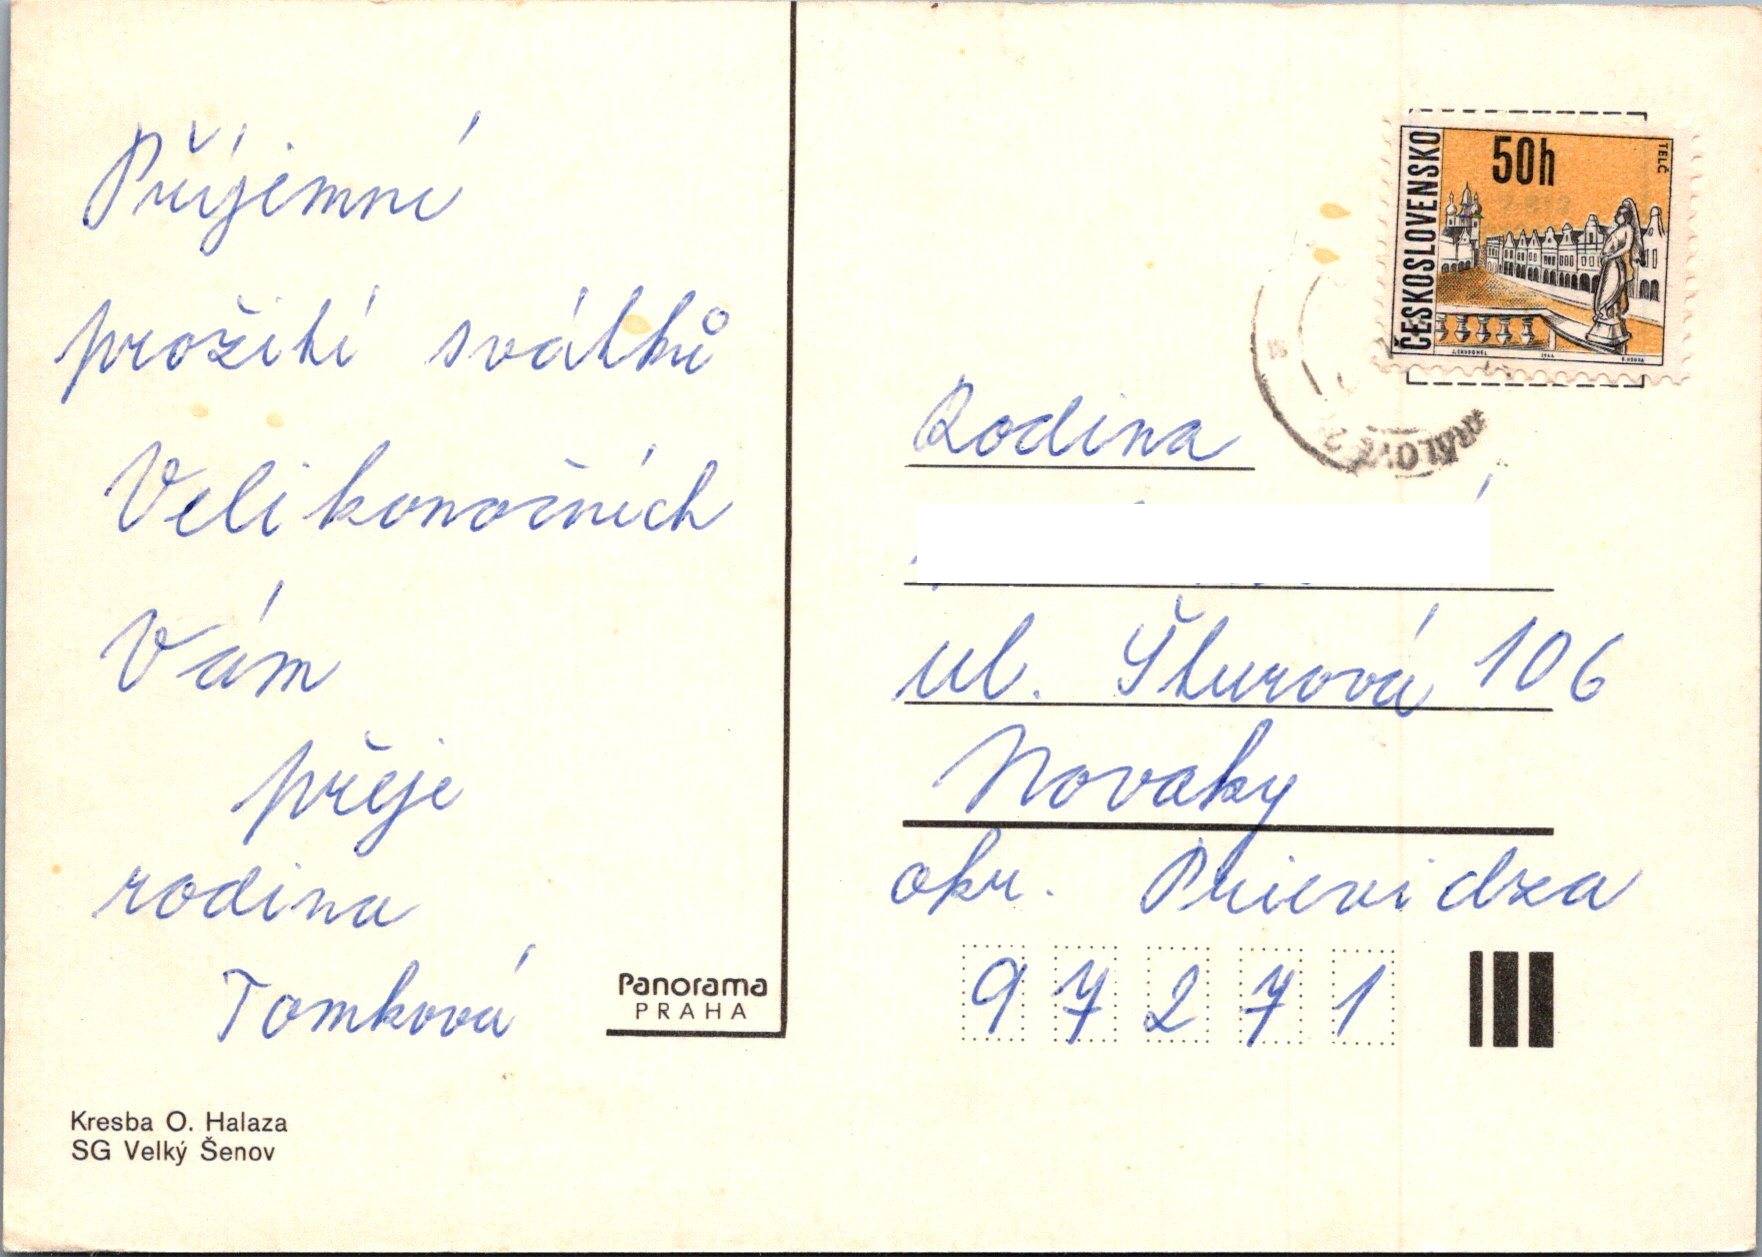 Příjemní
prožití svátků
Velikonočních
Vám
přeje
rodina
Tomková
Panorama
PRAHA
Kresba O. Halaza
SG Velký Šenov
ČESKOSLOVENSKO
50h
TELČ
Rodina
ul. Šturová 106
Novaky
okr. Prievidza
97271